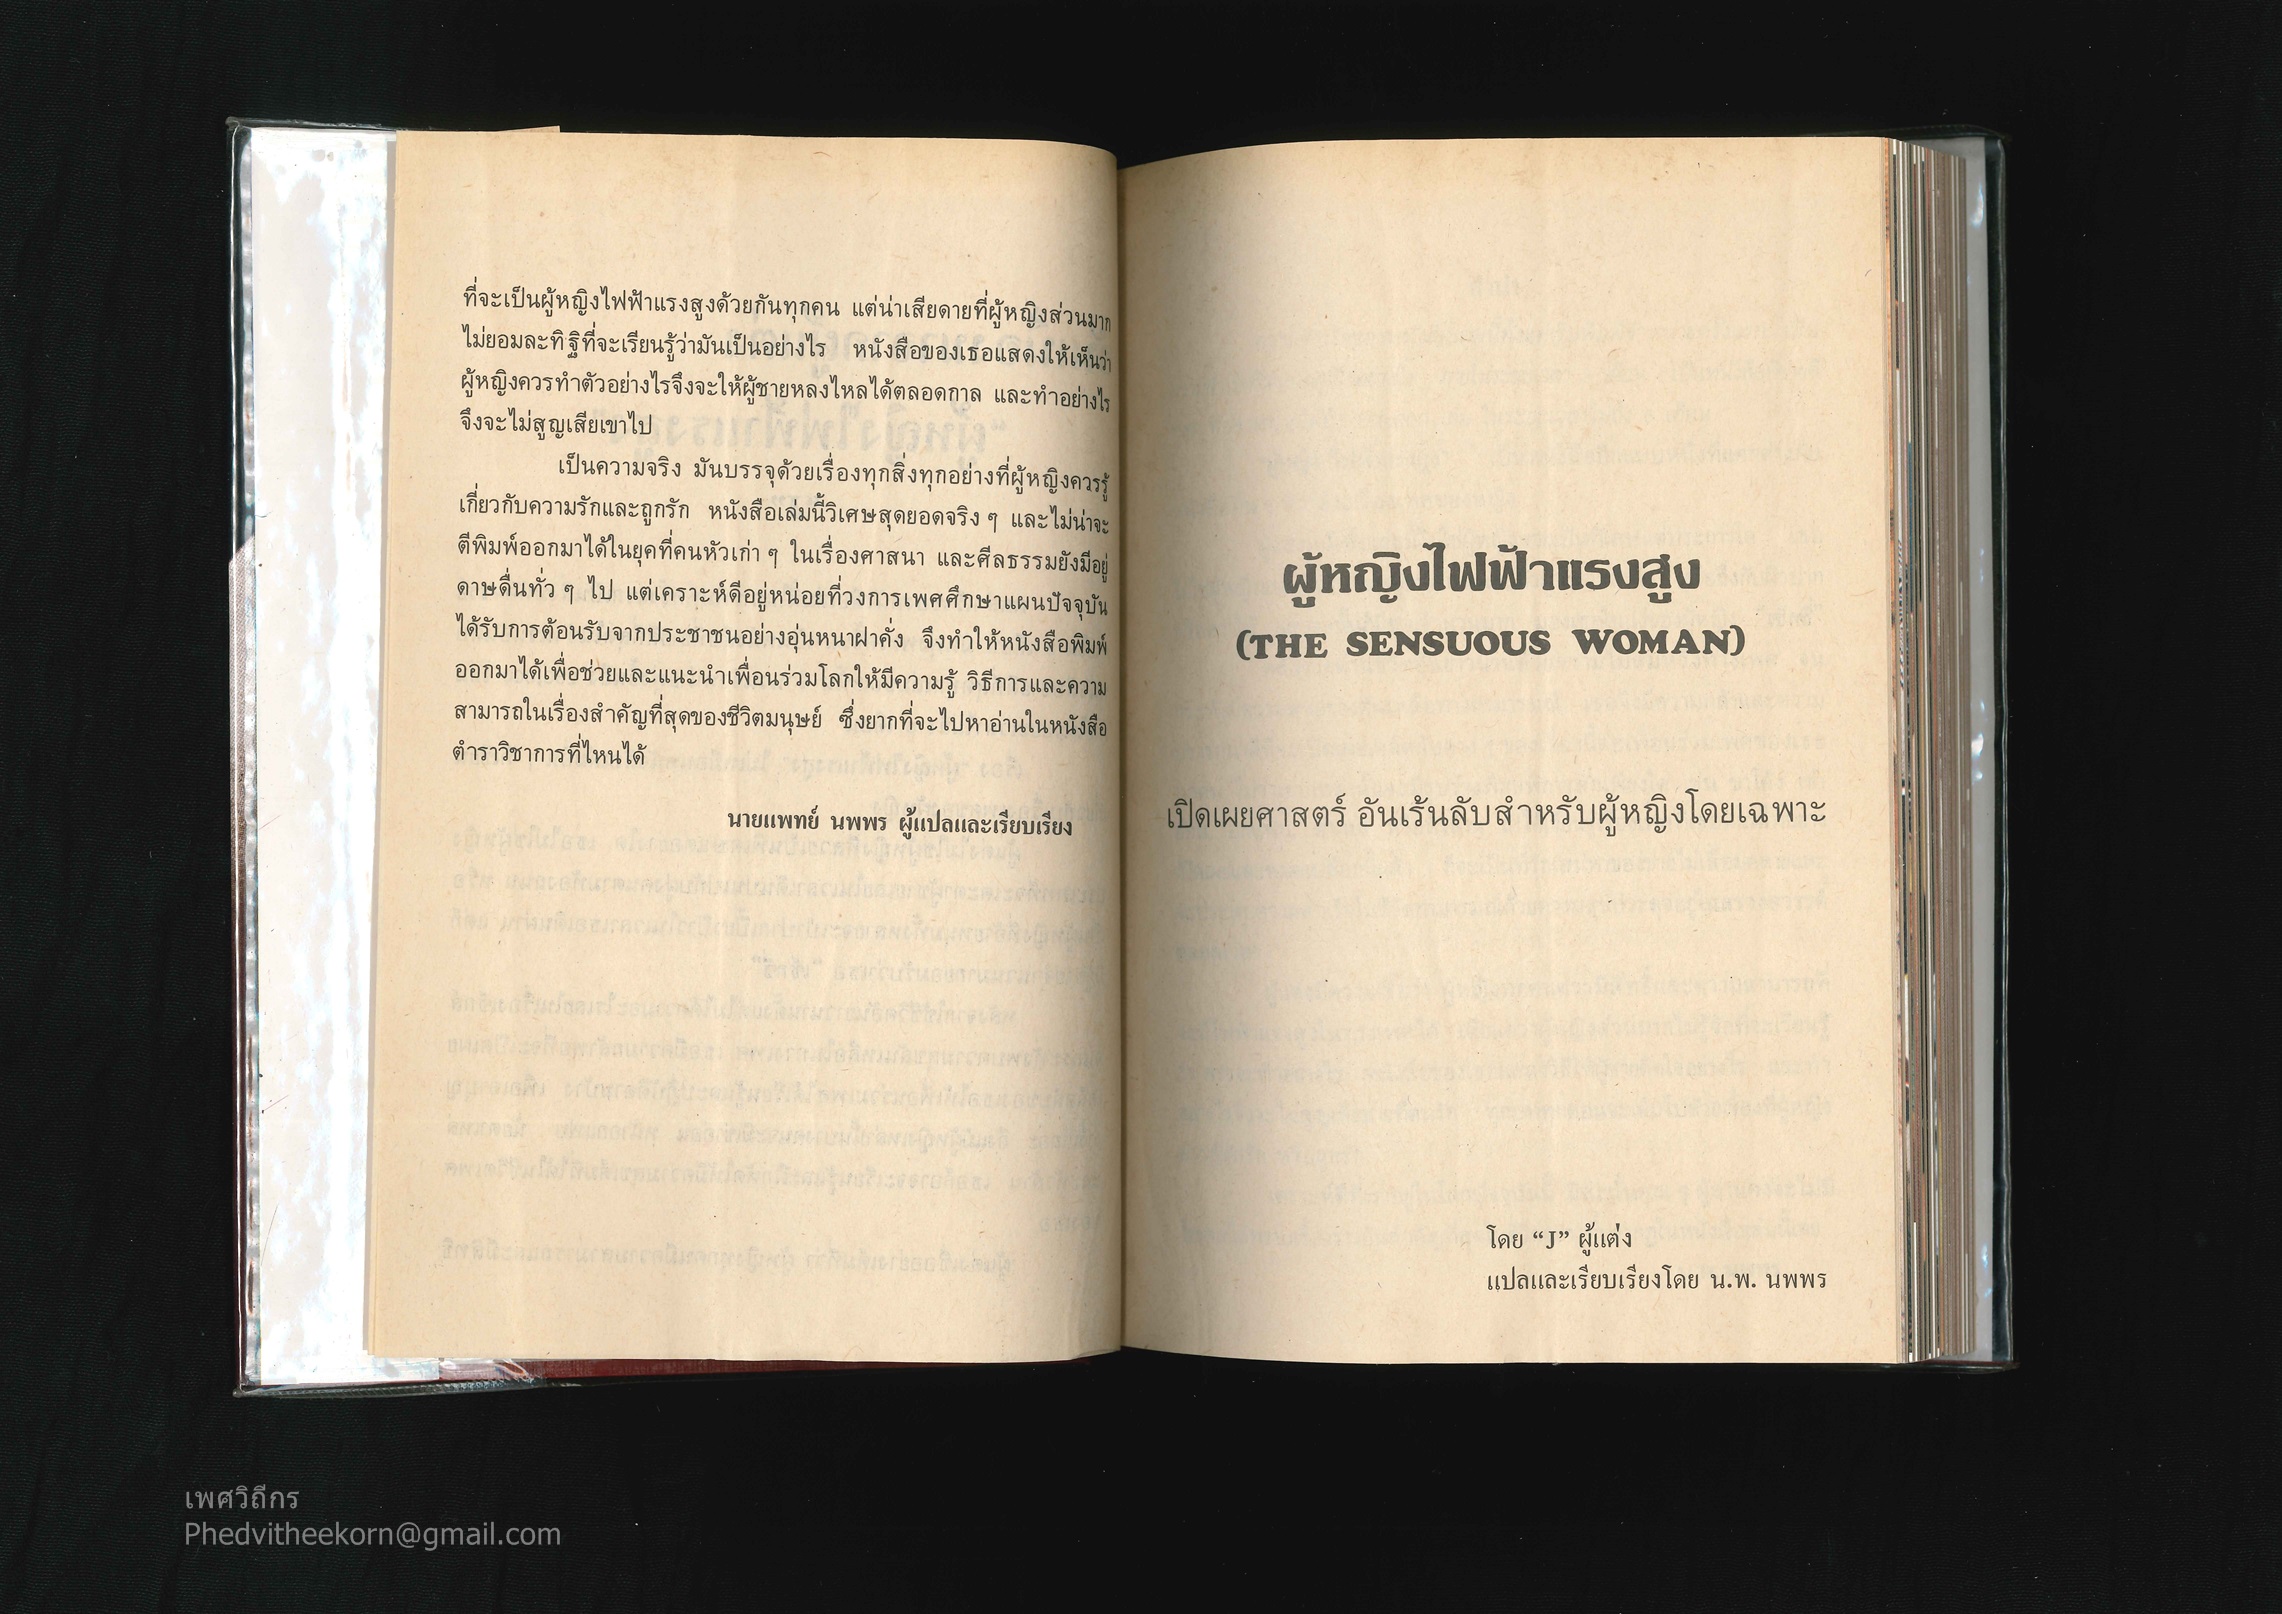 ที่จะเป็นผู้หญิงไฟฟ้าแรงสูงด้วยกันทุกคน แต่น่าเสียดายที่ผู้หญิงส่วนมาก
ไม่ยอมละทิฐิที่จะเรียนรู้ว่ามันเป็นอย่างไร หนังสือของเธอแสดงให้เห็นว่า
ผู้หญิงควรทำตัวอย่างไรจึงจะให้ผู้ชายหลงไหลได้ตลอดกาล และทำอย่างไร
จึงจะไม่สูญเสียเขาไป
เป็นความจริง มันบรรจุด้วยเรื่องทุกสิ่งทุกอย่างที่ผู้หญิงควรรู้
เกี่ยวกับความรักและถูกรัก หนังสือเล่มนี้วิเศษสุดยอดจริง ๆ และไม่น่าจะ
ตีพิมพ์ออกมาได้ในยุคที่คนหัวเก่า ๆ ในเรื่องศาสนา และศีลธรรมยังมีอยู่
ดาษดื่นทั่ว ๆ ไป แต่เคราะห์ดีอยู่หน่อยที่วงการเพศศึกษาแผนปัจจุบัน
ได้รับการต้อนรับจากประชาชนอย่างอุ่นหนาฝาคั่ง จึงทำให้หนังสือพิมพ์
ออกมาได้เพื่อช่วยและแนะนำเพื่อนร่วมโลกให้มีความรู้ วิธีการและความ
สามารถในเรื่องสำคัญที่สุดของชีวิตมนุษย์ ซึ่งยากที่จะไปหาอ่านในหนังสือ
ตำราวิชาการที่ไหนได้
นายแพทย์ นพพร ผู้แปลและเรียบเรียง
ผู้หญิงไฟฟ้าแรงสูง
(THE SENSUOUS WOMAN)
เปิดเผยศาสตร์ อันเร้นลับสำหรับผู้หญิงโดยเฉพาะ
โดย “J” ผู้แต่ง
แปลและเรียบเรียงโดย น.พ. นพพร
เพศวิถีกร
Phedvitheekorn@gmail.com